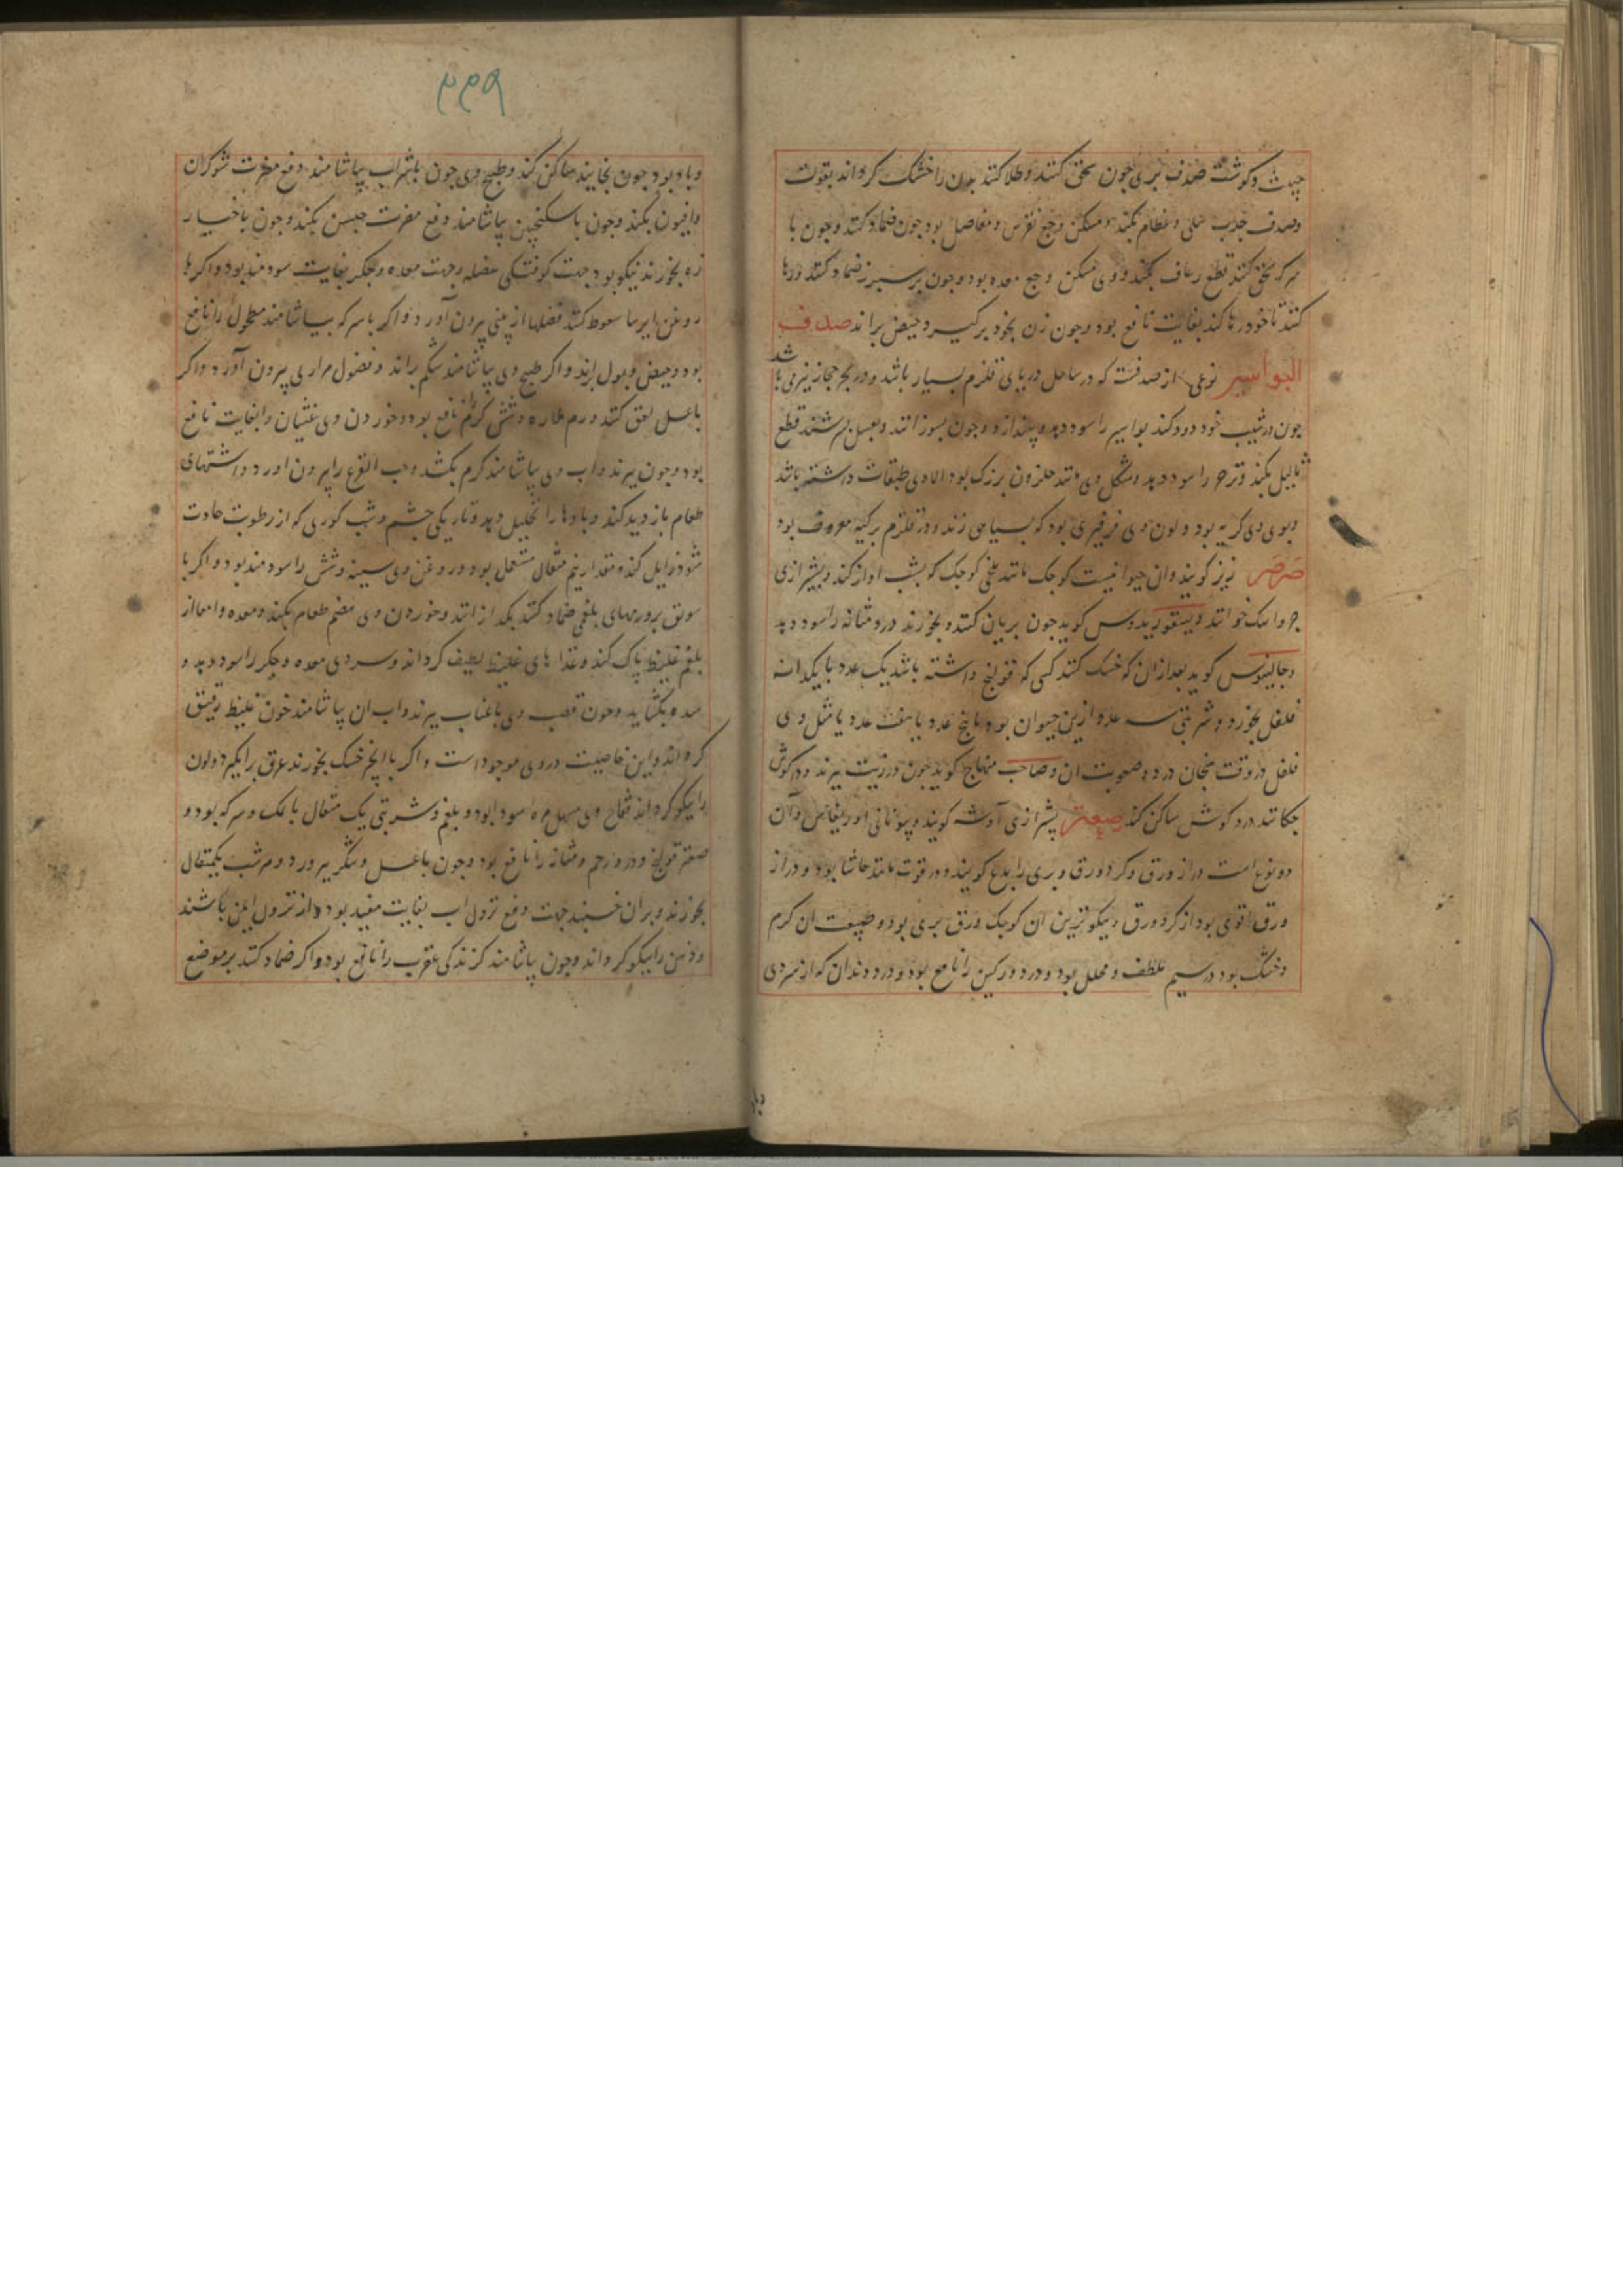 جبث وکوشت صدف بری جون سحق کنند وطلا کنند بدن را خشک کرداند بقوت
وصدف جذب سلی وعظام بکند ومسکن وجع نقرس ومفاصل بود جون ضماد کنند وجون با
سرکه سحق کنند قطع رعاف بکند ووی مسکن وجع معده بود وجون بر سبرز ضماد کنند ورها
کنند تا خود رها کند بغایت نافع بود وجون زن بخود برکیرد حیض براند صدف
البواسیر نوعی از صدفست که در ساحل دریای قلزم بسیار باشد ودر بحر حجاز نیز می باشد
جون در شیب خود دود کند بواسیر را سود دهد وبیندازد وجون بسوزانند وبعسل بسرشند قطع
ثالیل بکند وقرحه را سود دهد وشکل وی مانند حلزون بزرک بود الا وی طبقات داشته باشد
وبوی وی کریه بود ولون وی فرفیری بود که بسیاهی زند ودر قلزم برکبه معروف بود
صرصر زیز کویند وان حیوانیست کوجک مانند ملخی کوجک که بشب اواز کند وبشیرازی
جرواسک خوانند دیسقوریدوس کوید جون بریان کنند وبخورند درد مثانه را سود دهد
وجالینوس کوید بعد از ان که خسک کنند کسی که قولنج داشته باشد یک عدد با یکدانه
فلفل بخورد وشربتی سه عدد ازین حیوان بود یا پنج عدد یا هفت عدد با مثل وی
فلفل در وقت هیجان درد وصعوبت ان وصاحب منهاج کوید جون در زیت بپزند ودر کوش
جکانند درد کوش ساکن کند صعتر بشیرازی آوشه کویند وبیونانی اوریغانس وآن
دو نوع است دراز ورق وکرد ورق وبری را بدع کویند ودر قوت مانند حاشا بود ودراز
ورق اقوی بود از کرد ورق ونیکوترین ان کوجک ورق بری بود وطبیعت ان کرم
وخشک بود در سیم ملطف ومحلل بود ودرد ورکین را نافع بود ودرد دندان که از سردی
وباد
۴۴۹
وباد بود جون بخایند ساکن کند وطبیخ وی جون باشراب بیاشامند دفع مضرت شوکران
وافیون بکند وجون باسکنجبین بیاشامند دفع مضرت جبسن بکند وجون باخیار
زه بخورند نیکو بود جهت کوفتکی عضله وجهت معده وجکر بغایت سودمند بود واکر با
روغن ایرسا سعوط کنند فضلها از بینی بیرون آورد واکر باسرکه بیاشامند مطحول را نافع
بود وحیض وبول براند واکر طبیخ وی بیاشامند شکم براند وفضول مراری بیرون آورد واکر
باعسل لعق کنند ورم حاره وشش کرم نافع بود وخوردن وی غثیان را بغایت نافع
بود وجون بپزند واب وی بیاشامند کرم بکشد وحب القرع را بیرون اورد واشتهای
طعام بازدید کند وبادها را تحلیل دهد وتاریکی جشم وشب کوری که از رطوبت حادث
شود زایل کند ومقدار نیم مثقال مستعمل بود وروغن وی سینه وشش را سودمند بود واکر با
سویق بر ورمهای بلغمی ضماد کنند بکدازانند وخوردن وی هضم طعام بکند ومعده وامعا از
بلغم غلیظ باک کند وغذا های غلیظ لطیف کرداند وسردی معده وجکر را سود دهد و
سده بکشاید وجون قصب وی باعناب بپزند واب ان بیاشامند خون غلیظ رقیق
کرداند واین خاصیت در وی موجوداست واکر باانجیر خسک بخورند عرق برانکیزد ولون
را نیکو کرداند فقاح وی مسهل مره سودا بود وبلغم وشربتی یک مثقال بانمک وسرکه بود و
صعتر قولنج ودرد رحم ومثانه را نافع بود وجون باعسل وشکر ببرورد وهر شب یکمثقال
بخورند وبران خسبند جهت دفع نزول اب بغایت مفید بود واز نزول ایمن باشند
وذهن را نیکو کرداند وجون بیاشامند کزندکی عقرب را نافع بود واکر ضماد کنند بر موضع